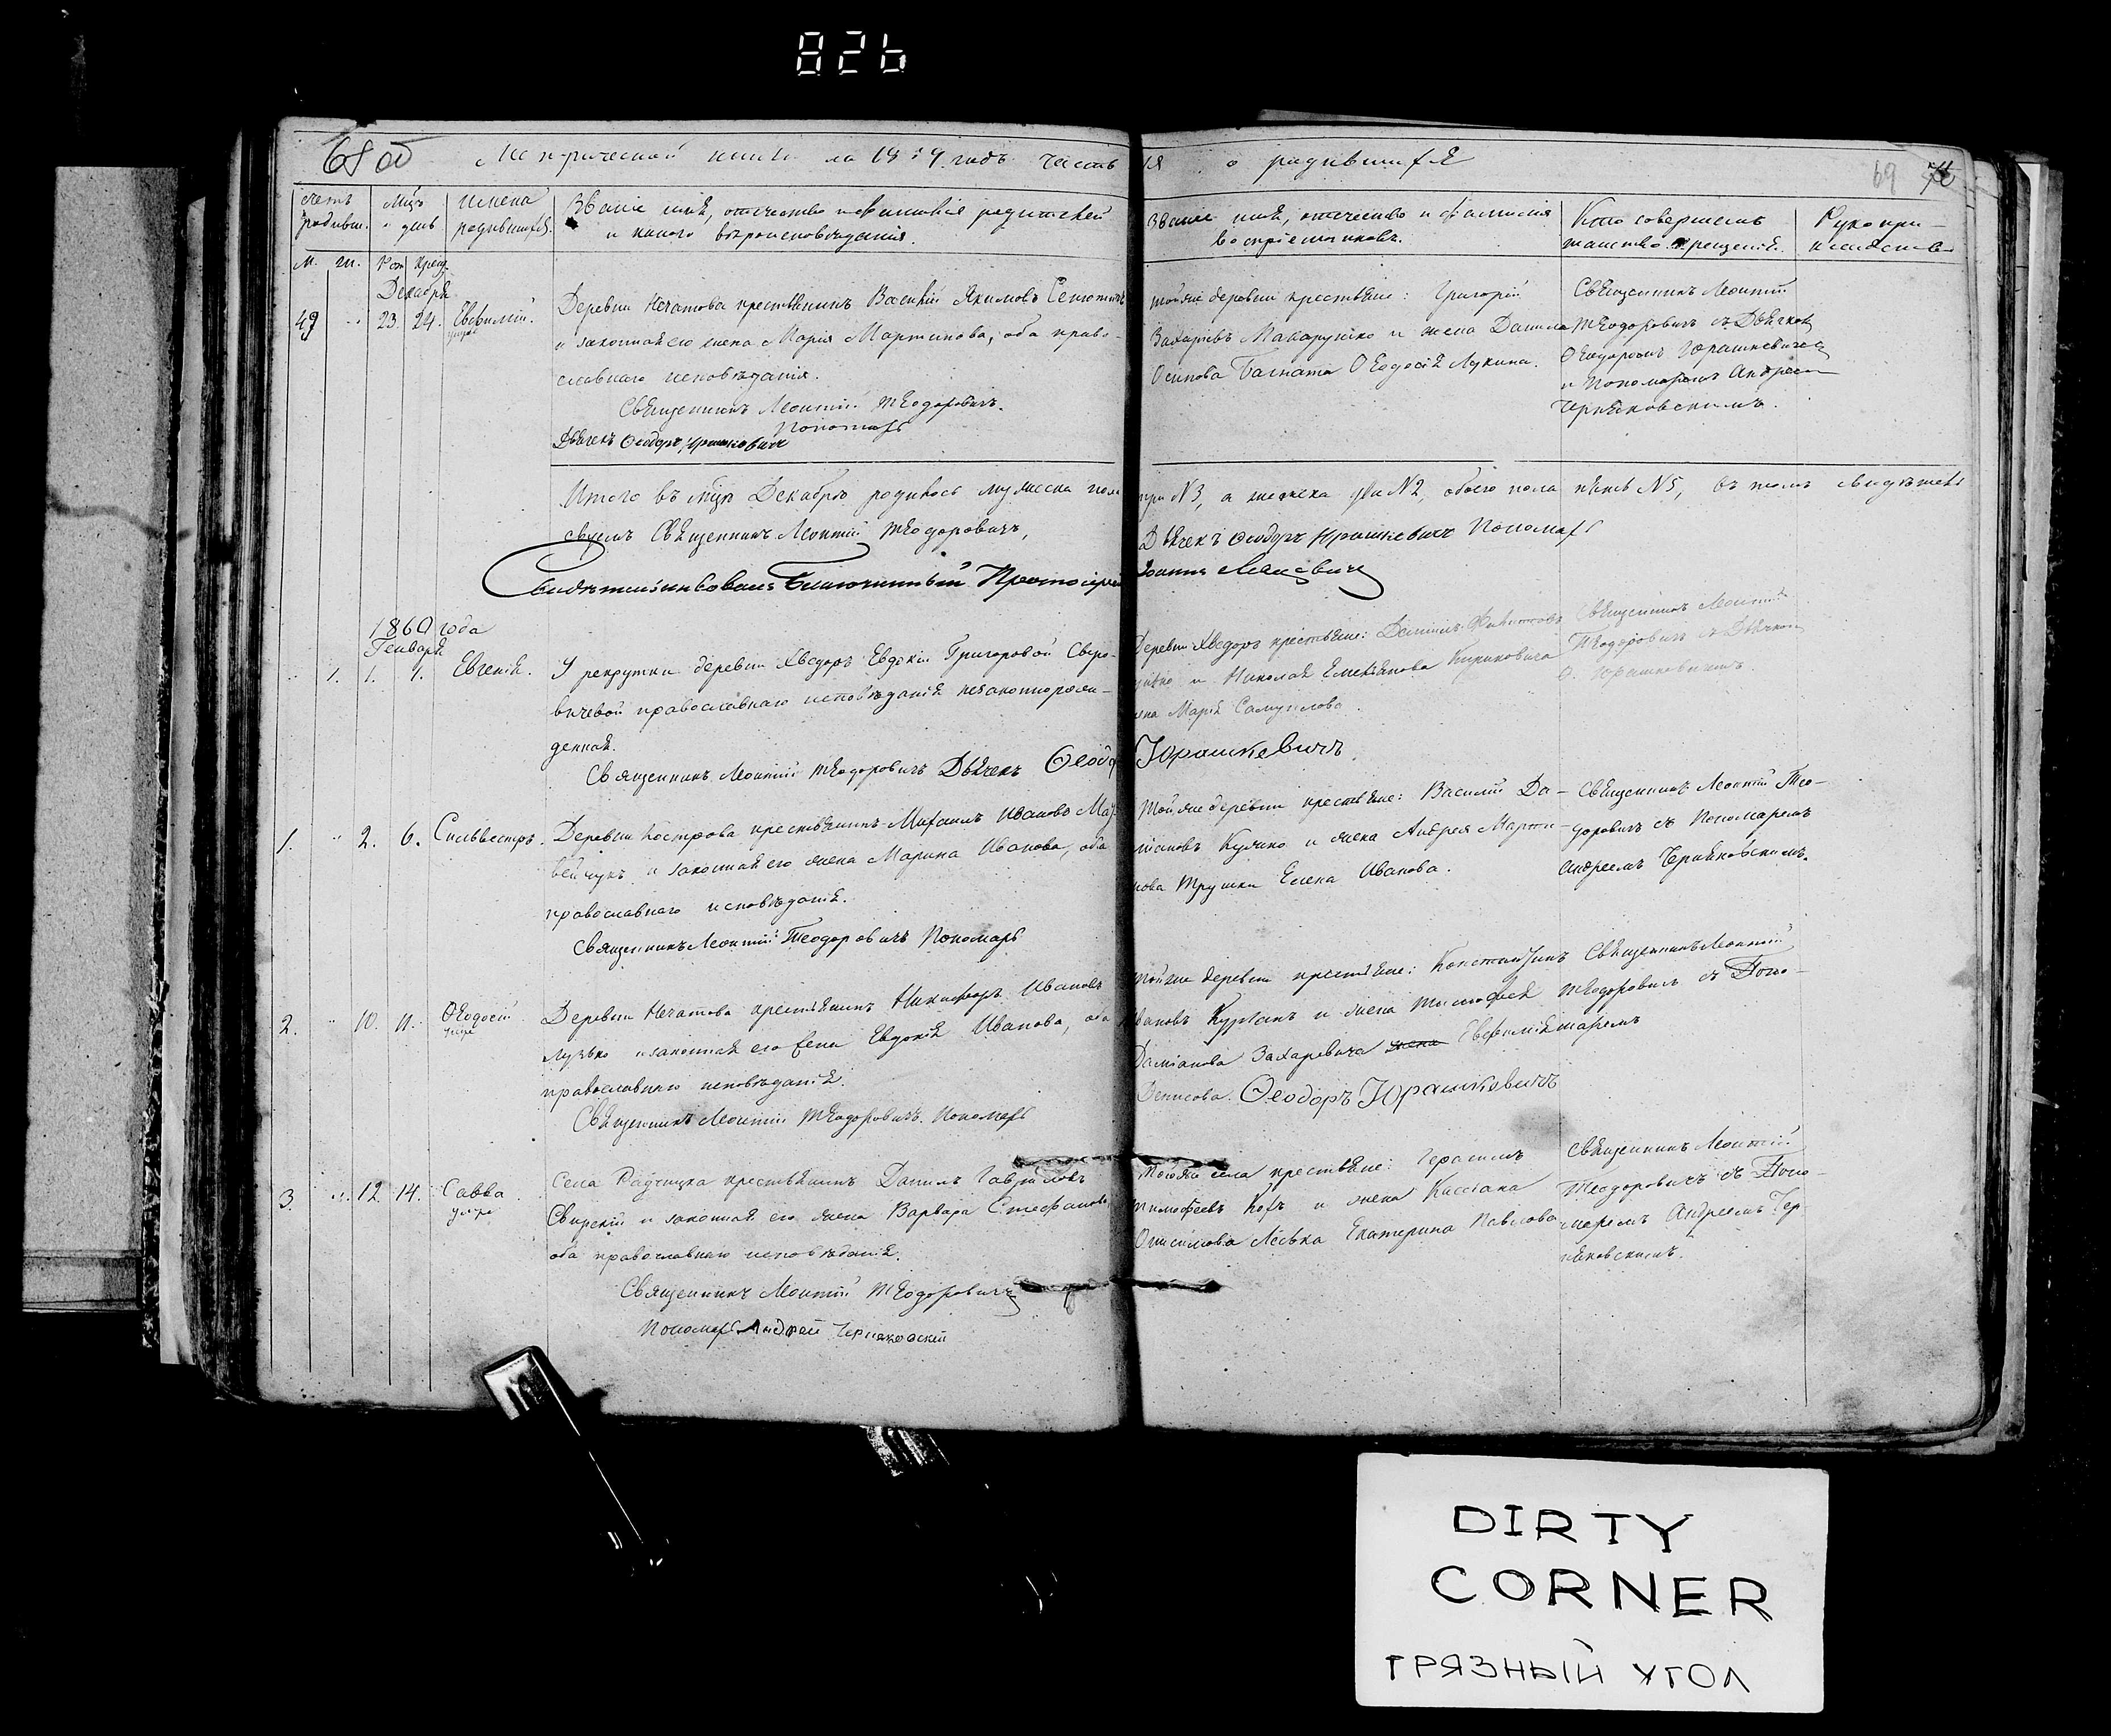 826
68 об
Метрической книги на 1859 годъ часть 1я о родившихся
69
Счетъ родивш.
Мцъ и день
Имена родившихся.
Званіе имя, отечество и фамилія родителей
и какого вѣроисповѣданія.
Званіе имя, отечество и фамилія
воспріемниковъ.
Кто совершалъ
таинство крещенія.
Рукопри-
кладство
М. Ж. Рож Крещ.
Декабря
49 23. 24. Евфимій.
умре
Деревни Нечатова крестьянинъ Василій Якимовъ
и законная его жена Марія Мартинова, оба право-
славнаго исповѣданія.
Священникъ Леонтій Теодоровичъ.
Пономарь
Дьячекъ Ѳеодоръ Юрашкевичъ
тойже деревни крестьяне: Григорій
Захаріевъ Макарушко и жена Данила
Осипова Багната Ѳеодосія Лукина.
Священникъ Леонтій
Теодоровичъ съ Дьячкомъ
Ѳеодоромъ Юрашкевичемъ
и Пономаремъ Андреемъ
Черняковскимъ.
Итого въ мцѣ Декабрѣ родилось мужеска пола три №3, а женска два №2, обоего пола пять №5, въ томъ свидѣтель
ствуемъ Священникъ Леонтій Теодоровичъ, Дьячекъ Ѳеодоръ Юрашкевичъ Пономарь
Свидѣтельствовалъ Благочинный Протоіерей Іоаннъ
1860 года
Генваря
1. 1. 1. Евгенія.
У рекрутки деревни Хведоръ Евдокіи Григоровой Сверо-
вичевой православнаго исповѣданія незаконнорож-
денная.
Священникъ Леонтій Теодоровичъ Дьячекъ Ѳеодоръ Юрашкевичъ
Деревни Хведоръ крестьяне:
и Николая Емельянова Кириковича
жена Марія Самуилова.
Священникъ Леонтій
Теодоровичъ съ Дьячкомъ
Ѳ. Юрашкевичемъ.
1. 2. 6. Сильвестръ.
Деревни Кострова крестьянинъ Михаилъ Ивановъ Мат-
вейчукъ и законная его жена Марина Иванова, оба
православнаго исповѣданія.
Священникъ Леонтій Теодоровичъ Пономарь
Тойже деревни крестьяне: Василій Да-
міановъ Кулико и жена Андрея Марти-
нова Трушки Елена Иванова.
Священникъ Леонтій Тео-
доровичъ съ Пономаремъ
Андреемъ Черняковскимъ.
2. 10. 11. Ѳеодосій
умре
Деревни Нечатова крестьянинъ Никифоръ Ивановъ
Лузько и законная его жена Евдокія Иванова, оба
православнаго исповѣданія.
Священникъ Леонтій Теодоровичъ. Пономарь
тойже деревни крестьяне: Константинъ
Ивановъ Курганъ и жена Тимофея
Даміанова Захаревича жена Евфимія
Денисова. Ѳеодоръ Юрашкевичъ
Священникъ Леонтій
Теодоровичъ съ Поно-
маремъ
3. 12 14. Савва
умре
Села Радчицка крестьянинъ Данилъ Гавріиловъ
Свирскій и законная его жена Варвара Стефанова,
оба православнаго исповѣданія.
Священникъ Леонтій Теодоровичъ
Пономарь Андрей Черняковскій
Тогоже села крестьяне: Герасимъ
Тимофеевъ Кохъ и жена Кассіана
Онисимова Леська Екатерина Павлова
Священникъ Леонтій
Теодоровичъ съ Поно-
маремъ Андреемъ Чер-
няковскимъ.
DIRTY
CORNER
ГРЯЗНЫЙ УГОЛ